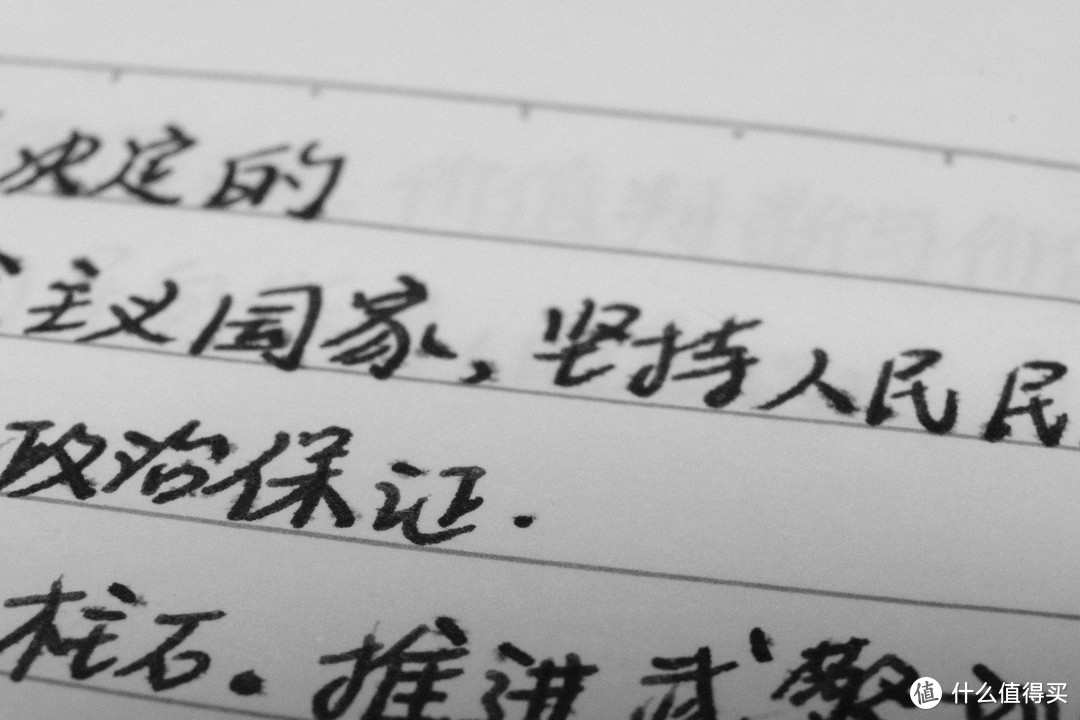 决定的
主义国家,坚持人民民
政治保证.
柱石.推进武警
值 什么值得买